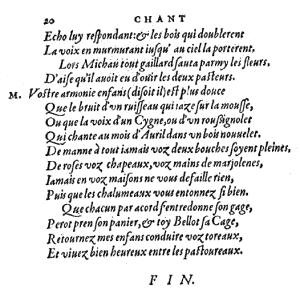 20 CHANT
Echo luy respondant:& les bois qui doublerent
La voix en murmurant iusqu' au ciel la porterent.
Lors Michau tout gaillard sauta parmy les fleurs,
D'aise qu'il auoit eu d'ouir les deux pasteurs.
M. Vostre armonie enfans (disoit il) est plus douce
Que le bruit d'un ruisseau qui iaze sur la mousse,
Ou que la voix d'un Cygne, ou d'un roussignolet
Qui chante au mois d'Auril dans un bois nouuelet.
De manne à tout iamais voz deux bouches soyent pleines,
De roses voz chapeaux, voz mains de mariolenes,
Iamais en voz maisons ne vous defaille rien,
Puis que les chalumeaux vous entonnez si bien.
Que chacun par acord s'entredonne son gage,
Perot pren son panier, & toy Bellot sa Cage,
Retournez mes enfans conduire voz toreaux,
Et viuez bien heureux entre les pastoureaux.
FIN.